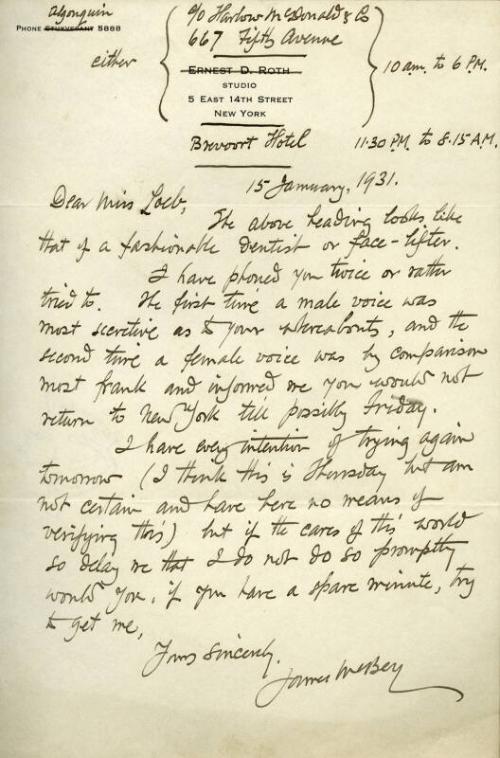 Algonquin
Phone Stuyvesant 5888
either
c/o Harlow McDonald & Co
667 Fifth Avenue
Ernest D. Roth
STUDIO
5 East 14th Street
New York
10 a.m. to 6 P.M.
Brevoort Hotel
11.30 P.M. to 8.15 A.M.
15 January, 1931.
Dear Miss Loeb,
The above heading looks like
that of a fashionable dentist or face-lifter.
I have phoned you twice or rather
tried to. The first time a male voice was
most secretive as to your whereabouts, and the
second time a female voice was by comparison
most frank and informed me you would not
return to New York till possibly Friday.
I have every intention of trying again
tomorrow (I think this is Thursday but am
not certain and have here no means of
verifying this) but if the cares of this world
so delay me that I do not do so promptly
would you, if you have a spare minute, try
to get me,
Yours Sincerely.
James McBey